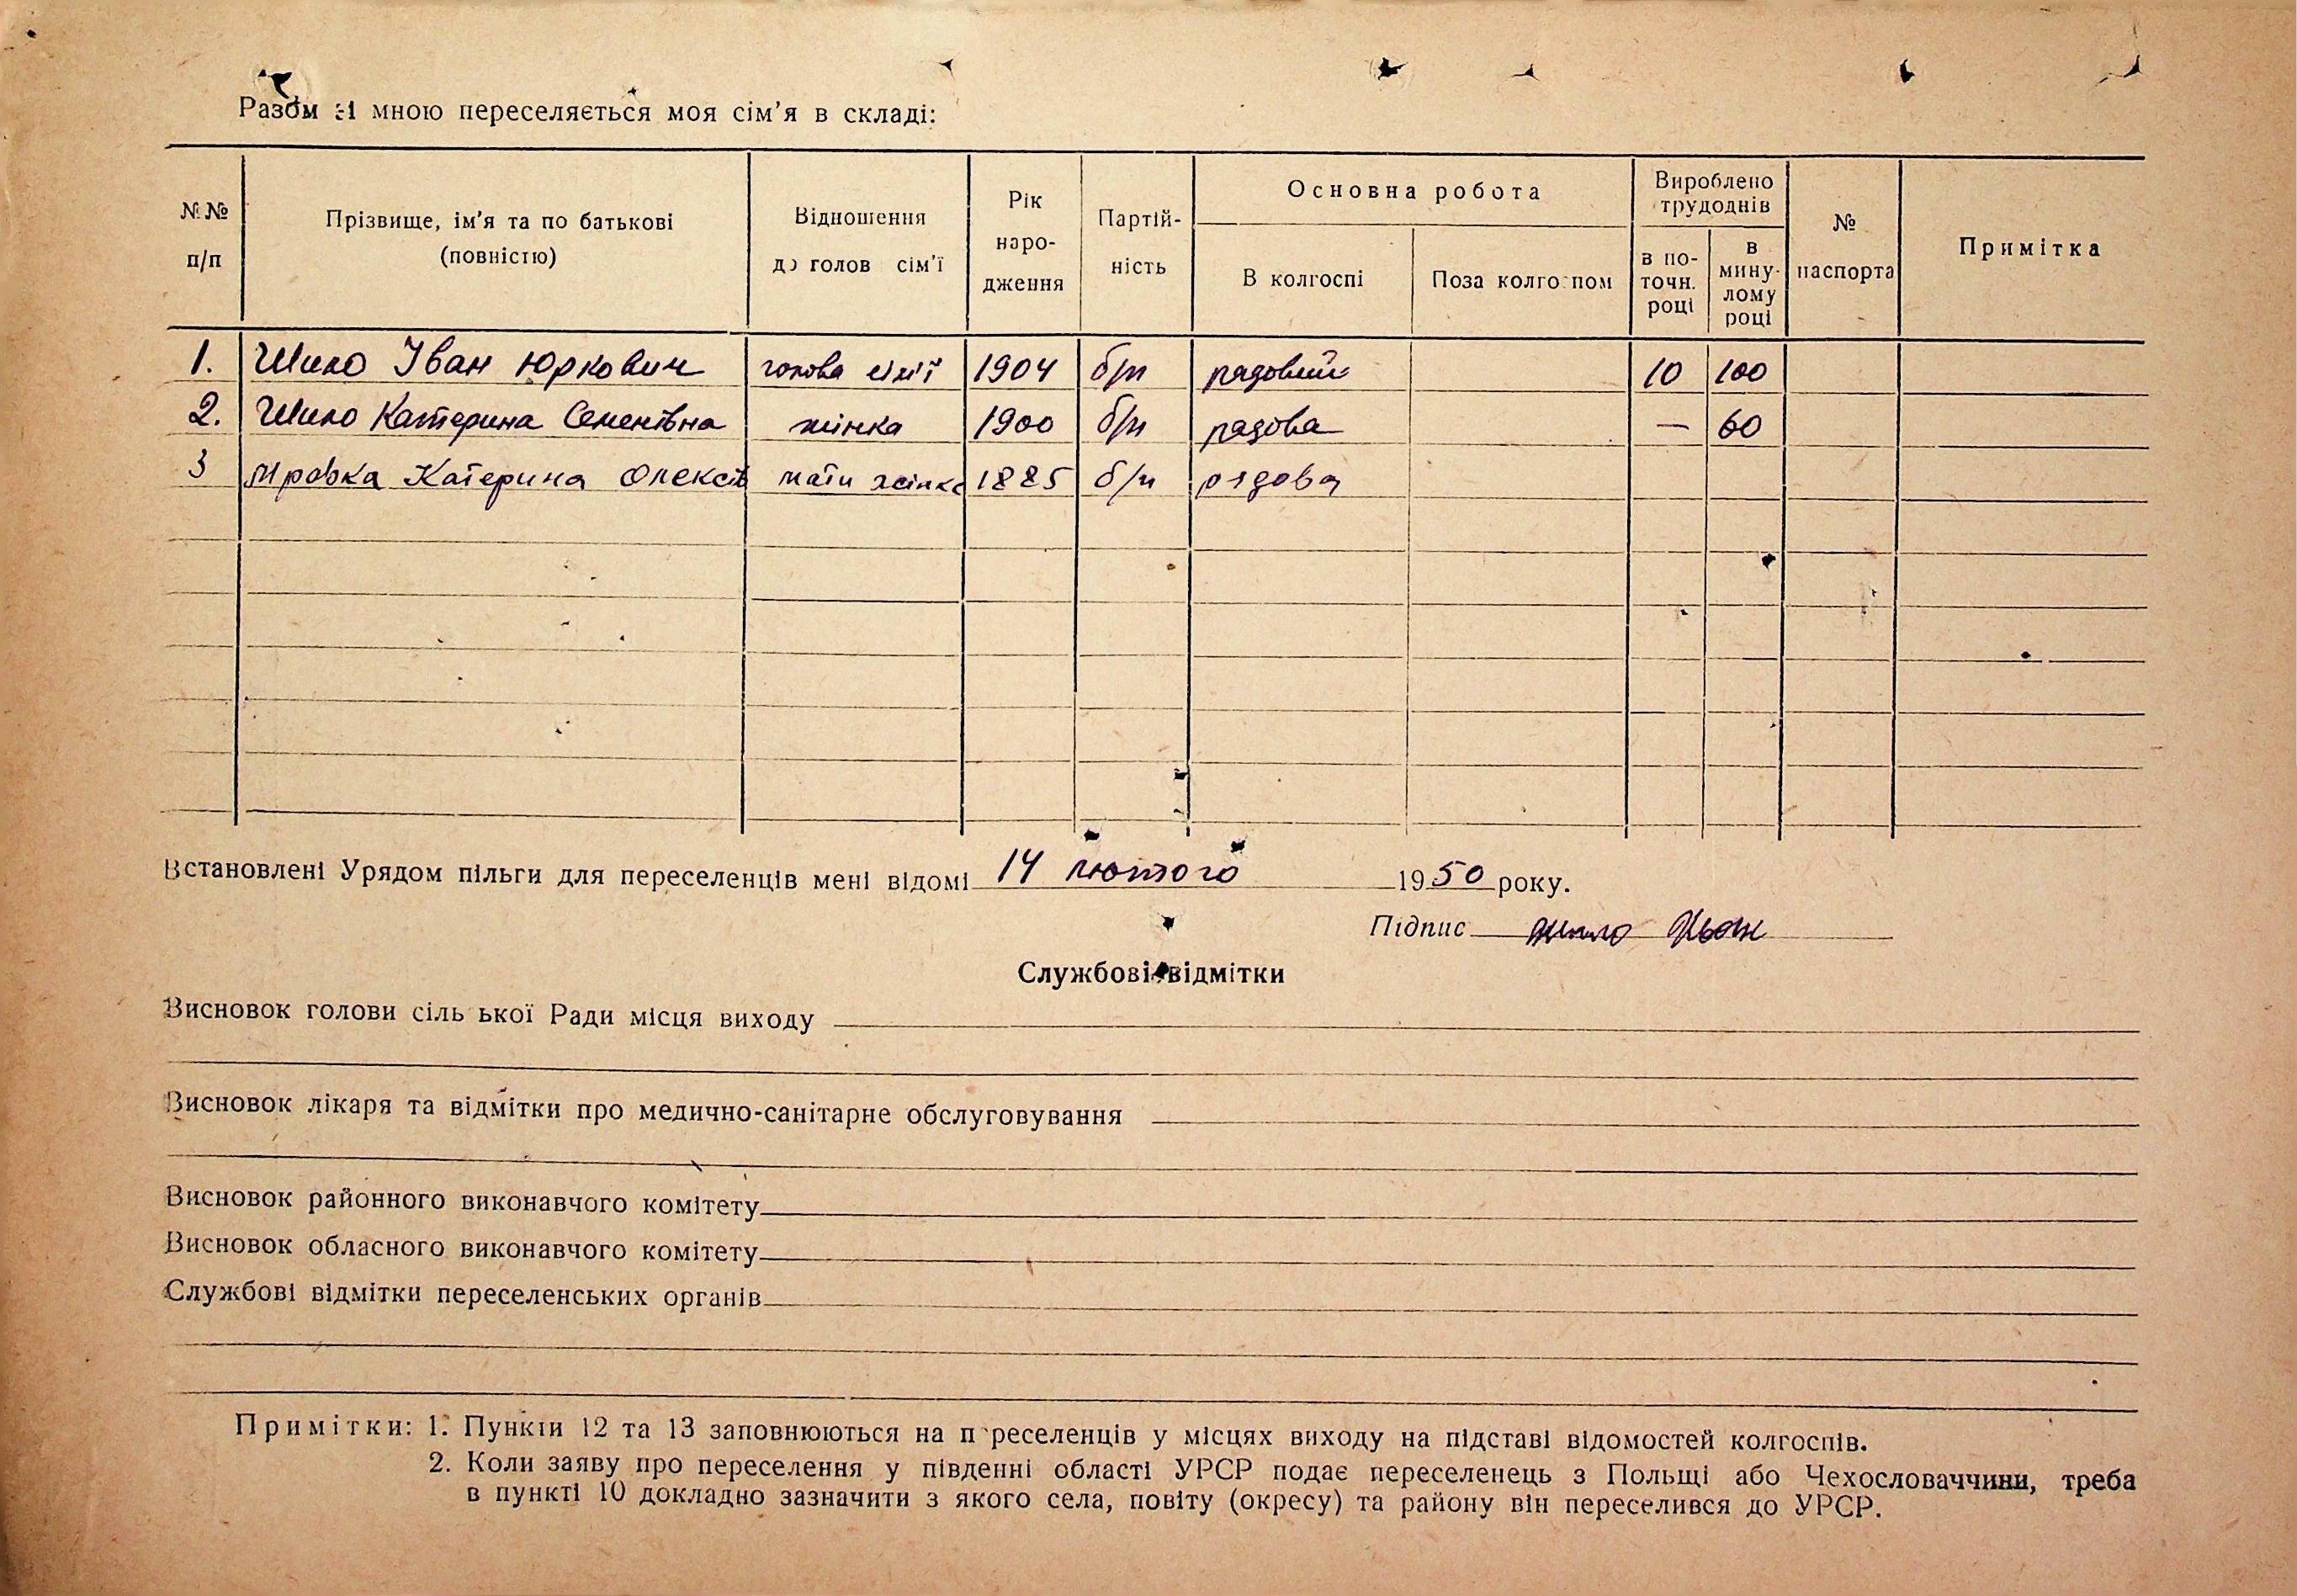 Разом зі мною переселяється моя сім'я в складі:
№№ п/п
Прізвище, ім'я та по батькові (повністю)
Відношення до голов сім'ї
Рік народження
Партійність
Основна робота
В колгоспі
Поза колго пом
Вироблено трудоднів
в поточн. році
в минулому році
№ паспорта
Примітка
1. Шило Іван Юркович голова сім'ї 1904 б/п рядовий 10 100
2. Шило Катерина Семенівна жінка 1900 б/п рядова — 60
3 Катерина Олексів мати жінки 1885 б/п рядова
Встановлені Урядом пільги для переселенців мені відомі 14 лютого 1950 року.
Підпис Шило
Службові відмітки
Висновок голови сіль ької Ради місця виходу
Висновок лікаря та відмітки про медично-санітарне обслуговування
Висновок районного виконавчого комітету
Висновок обласного виконавчого комітету
Службові відмітки переселенських органів
Примітки: 1. Пункти 12 та 13 заповнюються на п реселенців у місцях виходу на підставі відомостей колгоспів.
2. Коли заяву про переселення у південні області УРСР подає переселенець з Польщі або Чехословаччини, треба
в пункті 10 докладно зазначити з якого села, повіту (окресу) та району він переселився до УРСР.